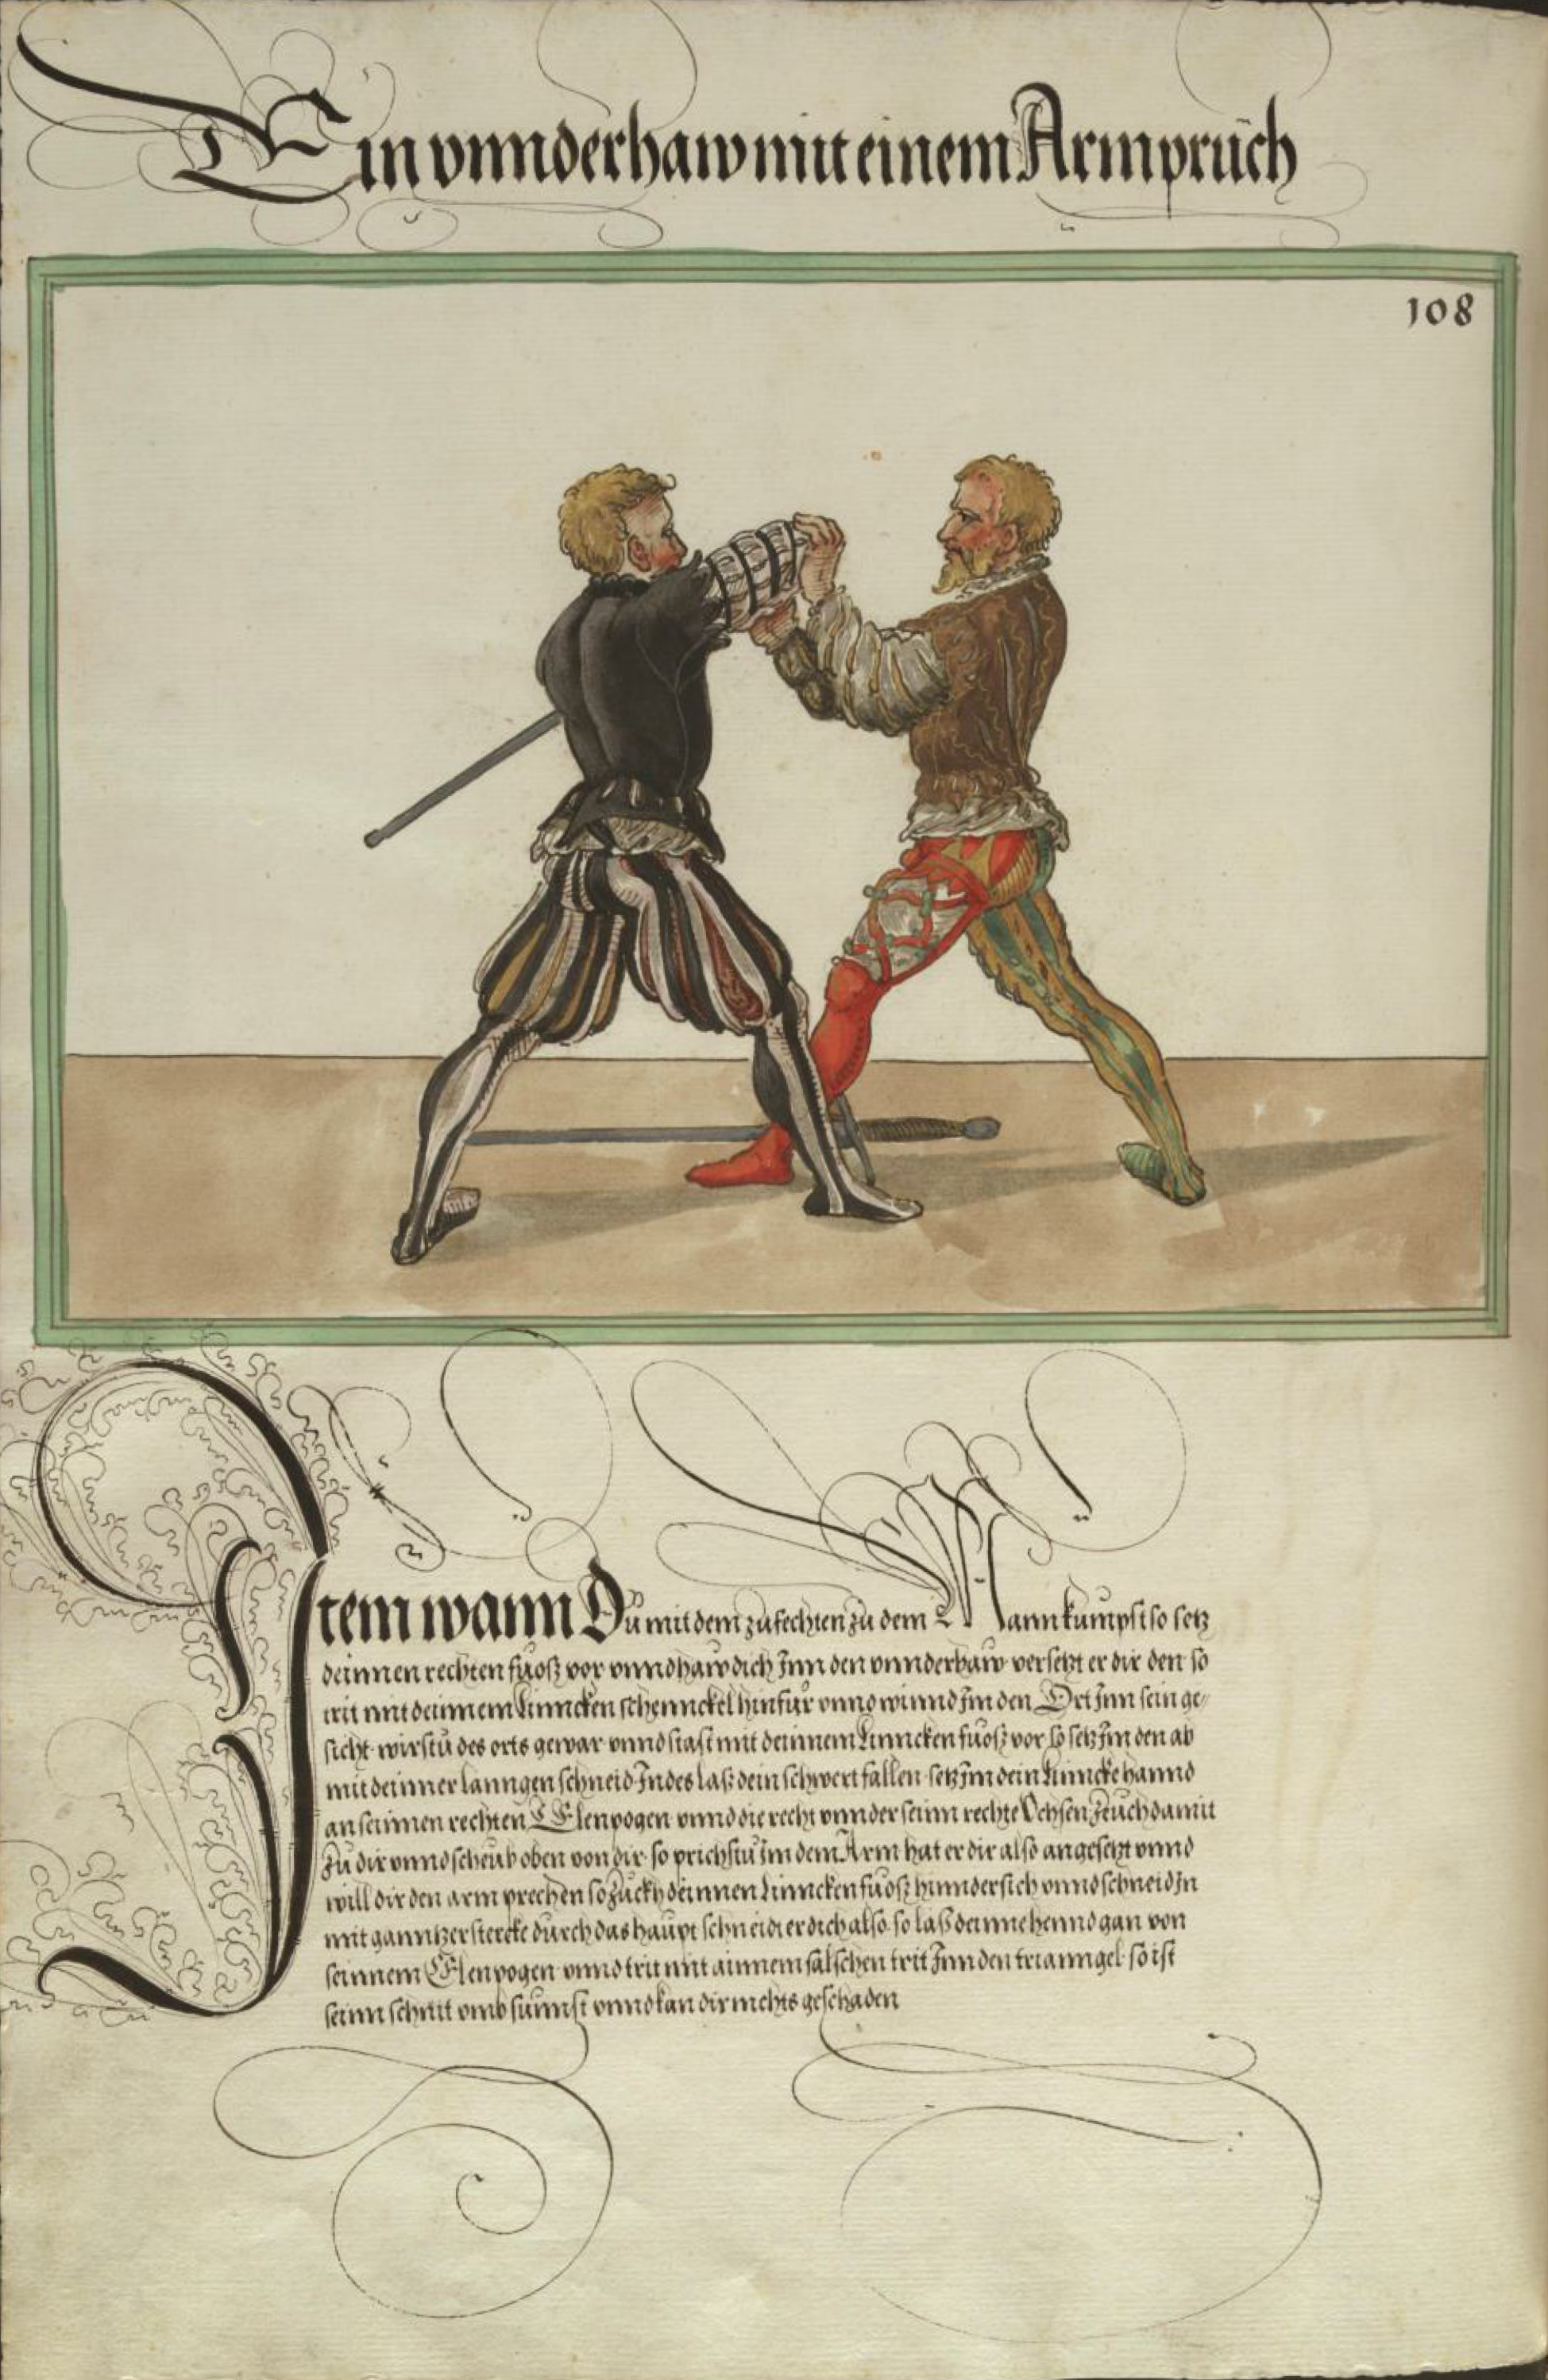 Ein vnnderhaw mit einem Armprüch
108
Item wann Dü mit dem zůfechten zů dem Mann kumpst so setz
deinnen rechten fůosz vor vnnd haw dich Inn den vnnderhaw versetzt er dir den so
trit mit deinnem Linncken schennckel hinfür vnnd winnd Im den Ort Inn sein ge/
sicht wirstü des orts gewar vnnd stast mit deinnem Linncken fůosz vor so setz Im den ab
mit deinner lanngen schneid Indes lasz dein schwert fallen setz Im dein Linncke hannd
an seinnen rechten Elenpogen vnnd die recht vnnder seinn rechte Vchsen zeuch damit
zů dir vnnd scheub oben von dir so prichstu im dem Arm hat er dir also angesetzt vnnd
will dir den arm prechen so zuckh deinnen Linncken fůosz hinndersich vnnd schneid In
mit ganntzer stercke durch das haupt schneidt er dich also so lasz deinne hennd gan von
seinnem Elenpogen vnnd trit mit ainnem falschen trit Inn den trianngel so ist
seinn schnit vmb sunnst vnnd kan dir nichts geschaden